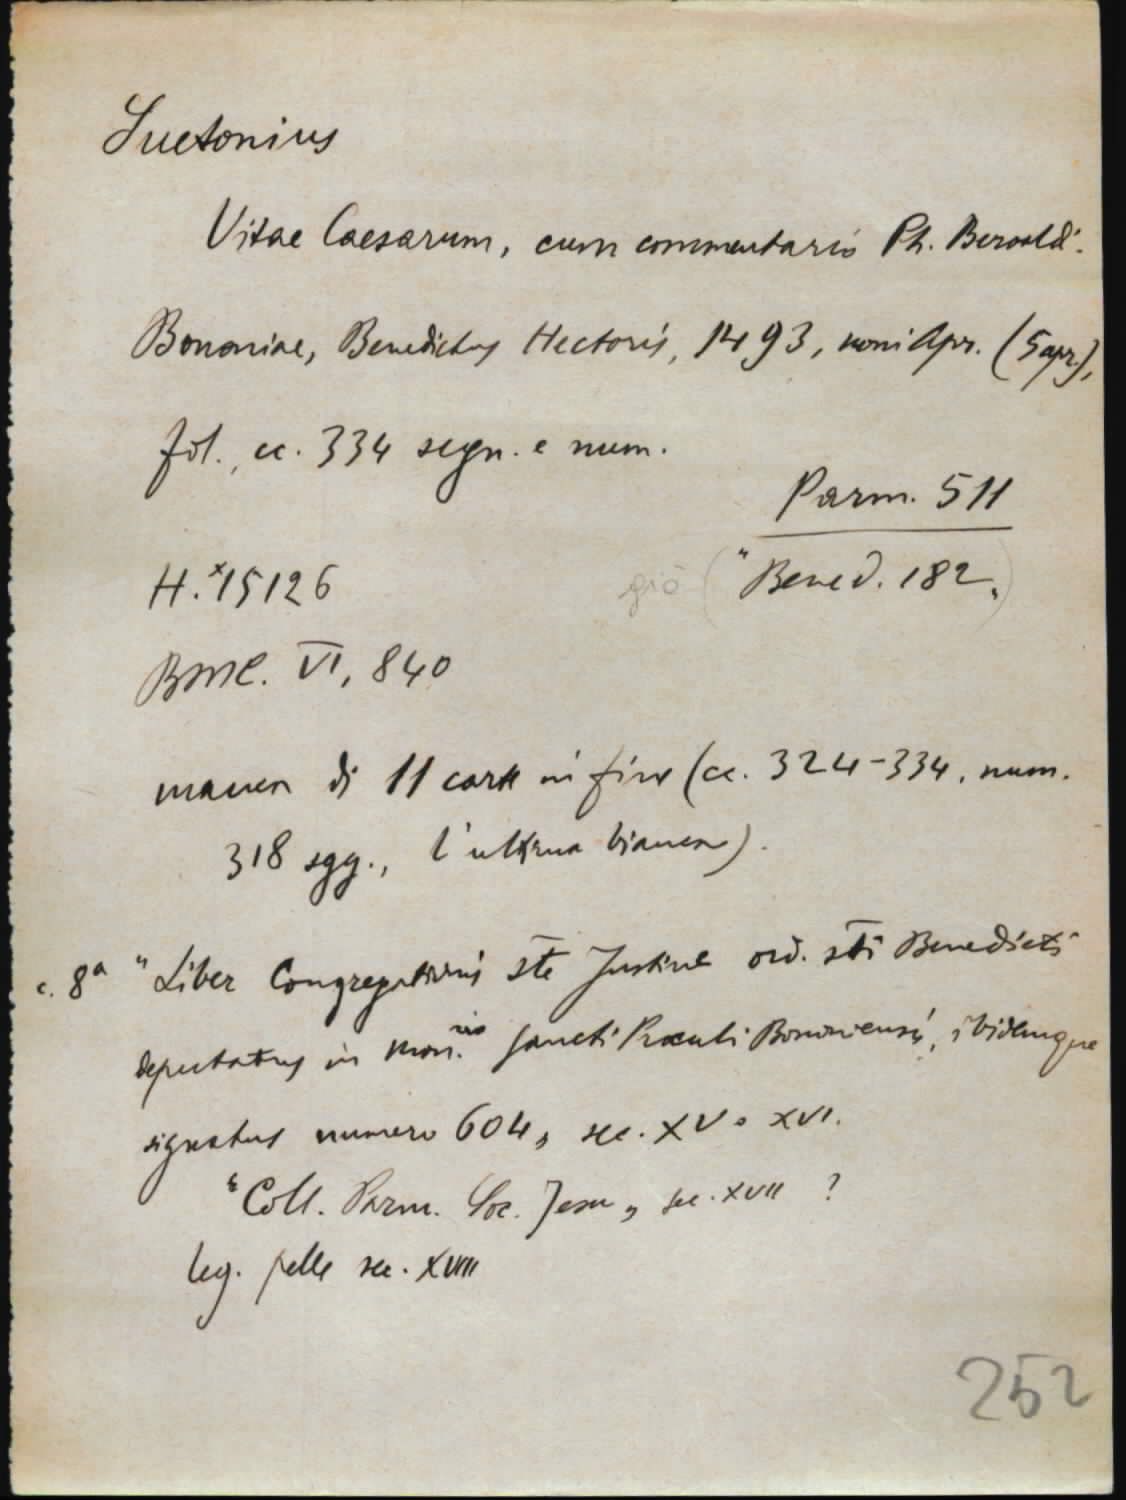 Suetonius
Vitae Caesarum, cum commentario Ph. Beroaldi.
Bononiae, Benedictus Hectoris, 1493, noni Apr. (5 apr.),
fol., cc. 334 segn. e num.
Parm. 511
H.*15126
già ("Bened. 182")
BMC. VI, 840
manca di 11 carte in fine (cc. 324-334, num.
318 sgg., l'ultima bianca).
c. 8a "Liber Congregationis ste Justine ord. sti Benedicti
deputatus in mon.rio sancti Proculi Bononiensis, ibidemque
signatus numero 604", sec. XV o XVI.
"Coll. Parm. Soc. Jesu", sec. XVII ?
leg. pelle sec. XVIII
252